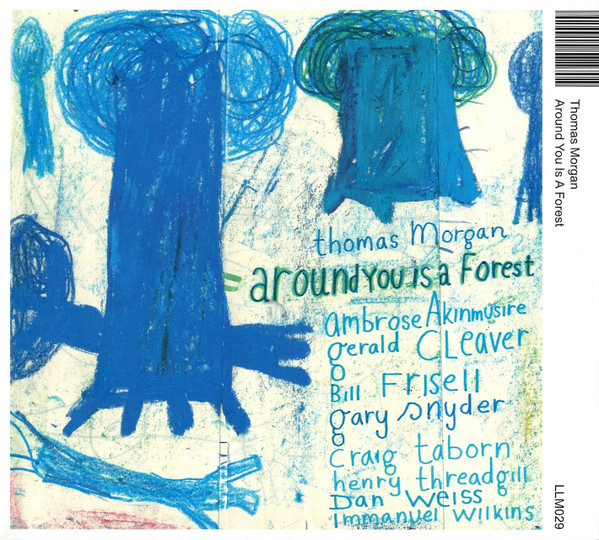 thomas Morgan
around you is a Forest
ambrose Akinmusire
gerald Cleaver
Bill Frisell
gary snyder
craig taborn
henry threadgill
Dan Weiss
Immanuel Wilkins
Thomas Morgan
Around You Is A Forest
LLM029